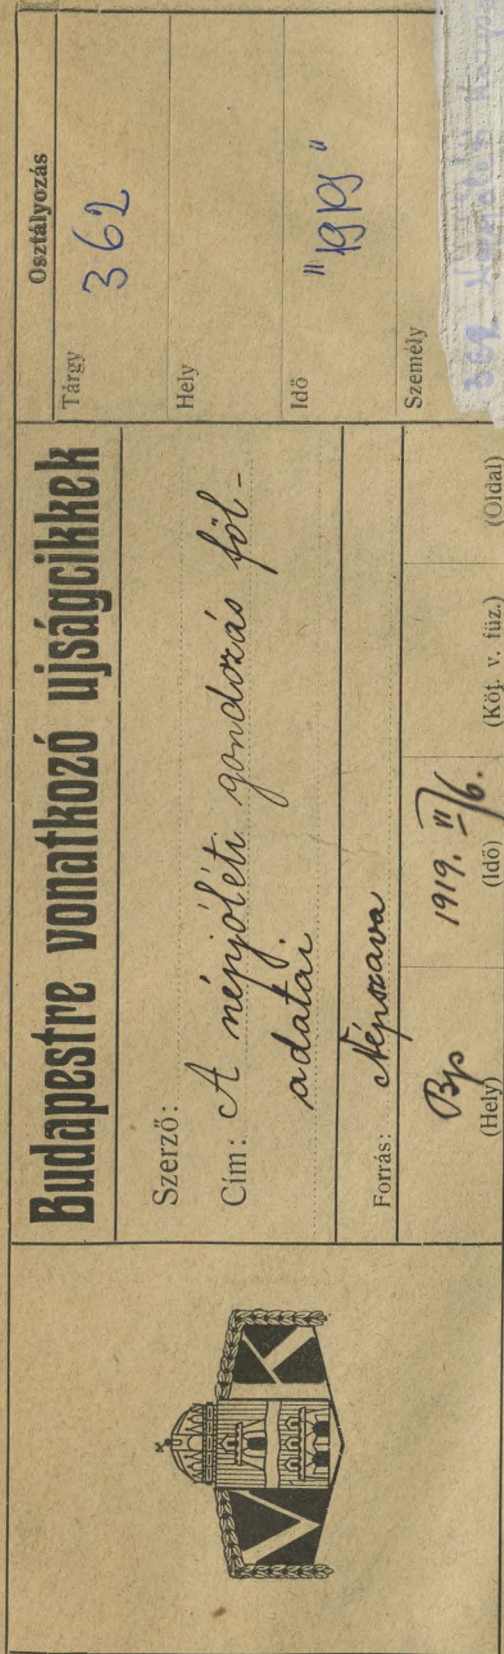 V K
Budapestre vonatkozó ujságcikkek
Szerző:
Cím: A népjóléti gondozás föl-
adatai
Forrás: Népszava
Bp 1919. VI/6.
(Hely) (Idő) (Köt. v. füz.) (Oldal)
Osztályozás
Tárgy
362
Hely
Idő
"1919"
Személy